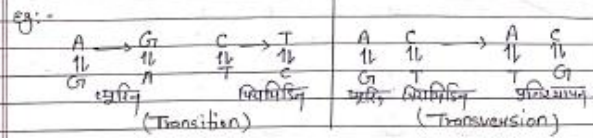 eg:-
A → G C → T A C → A C
⇅ ⇅ ⇅ ⇅ ⇅ ⇅ ⇅ ⇅
G A T C G T T G
प्यूरिन पिरामिडिन प्यूरिन पिरामिडिन प्रतिस्थापन
(Transition) (Transversion)